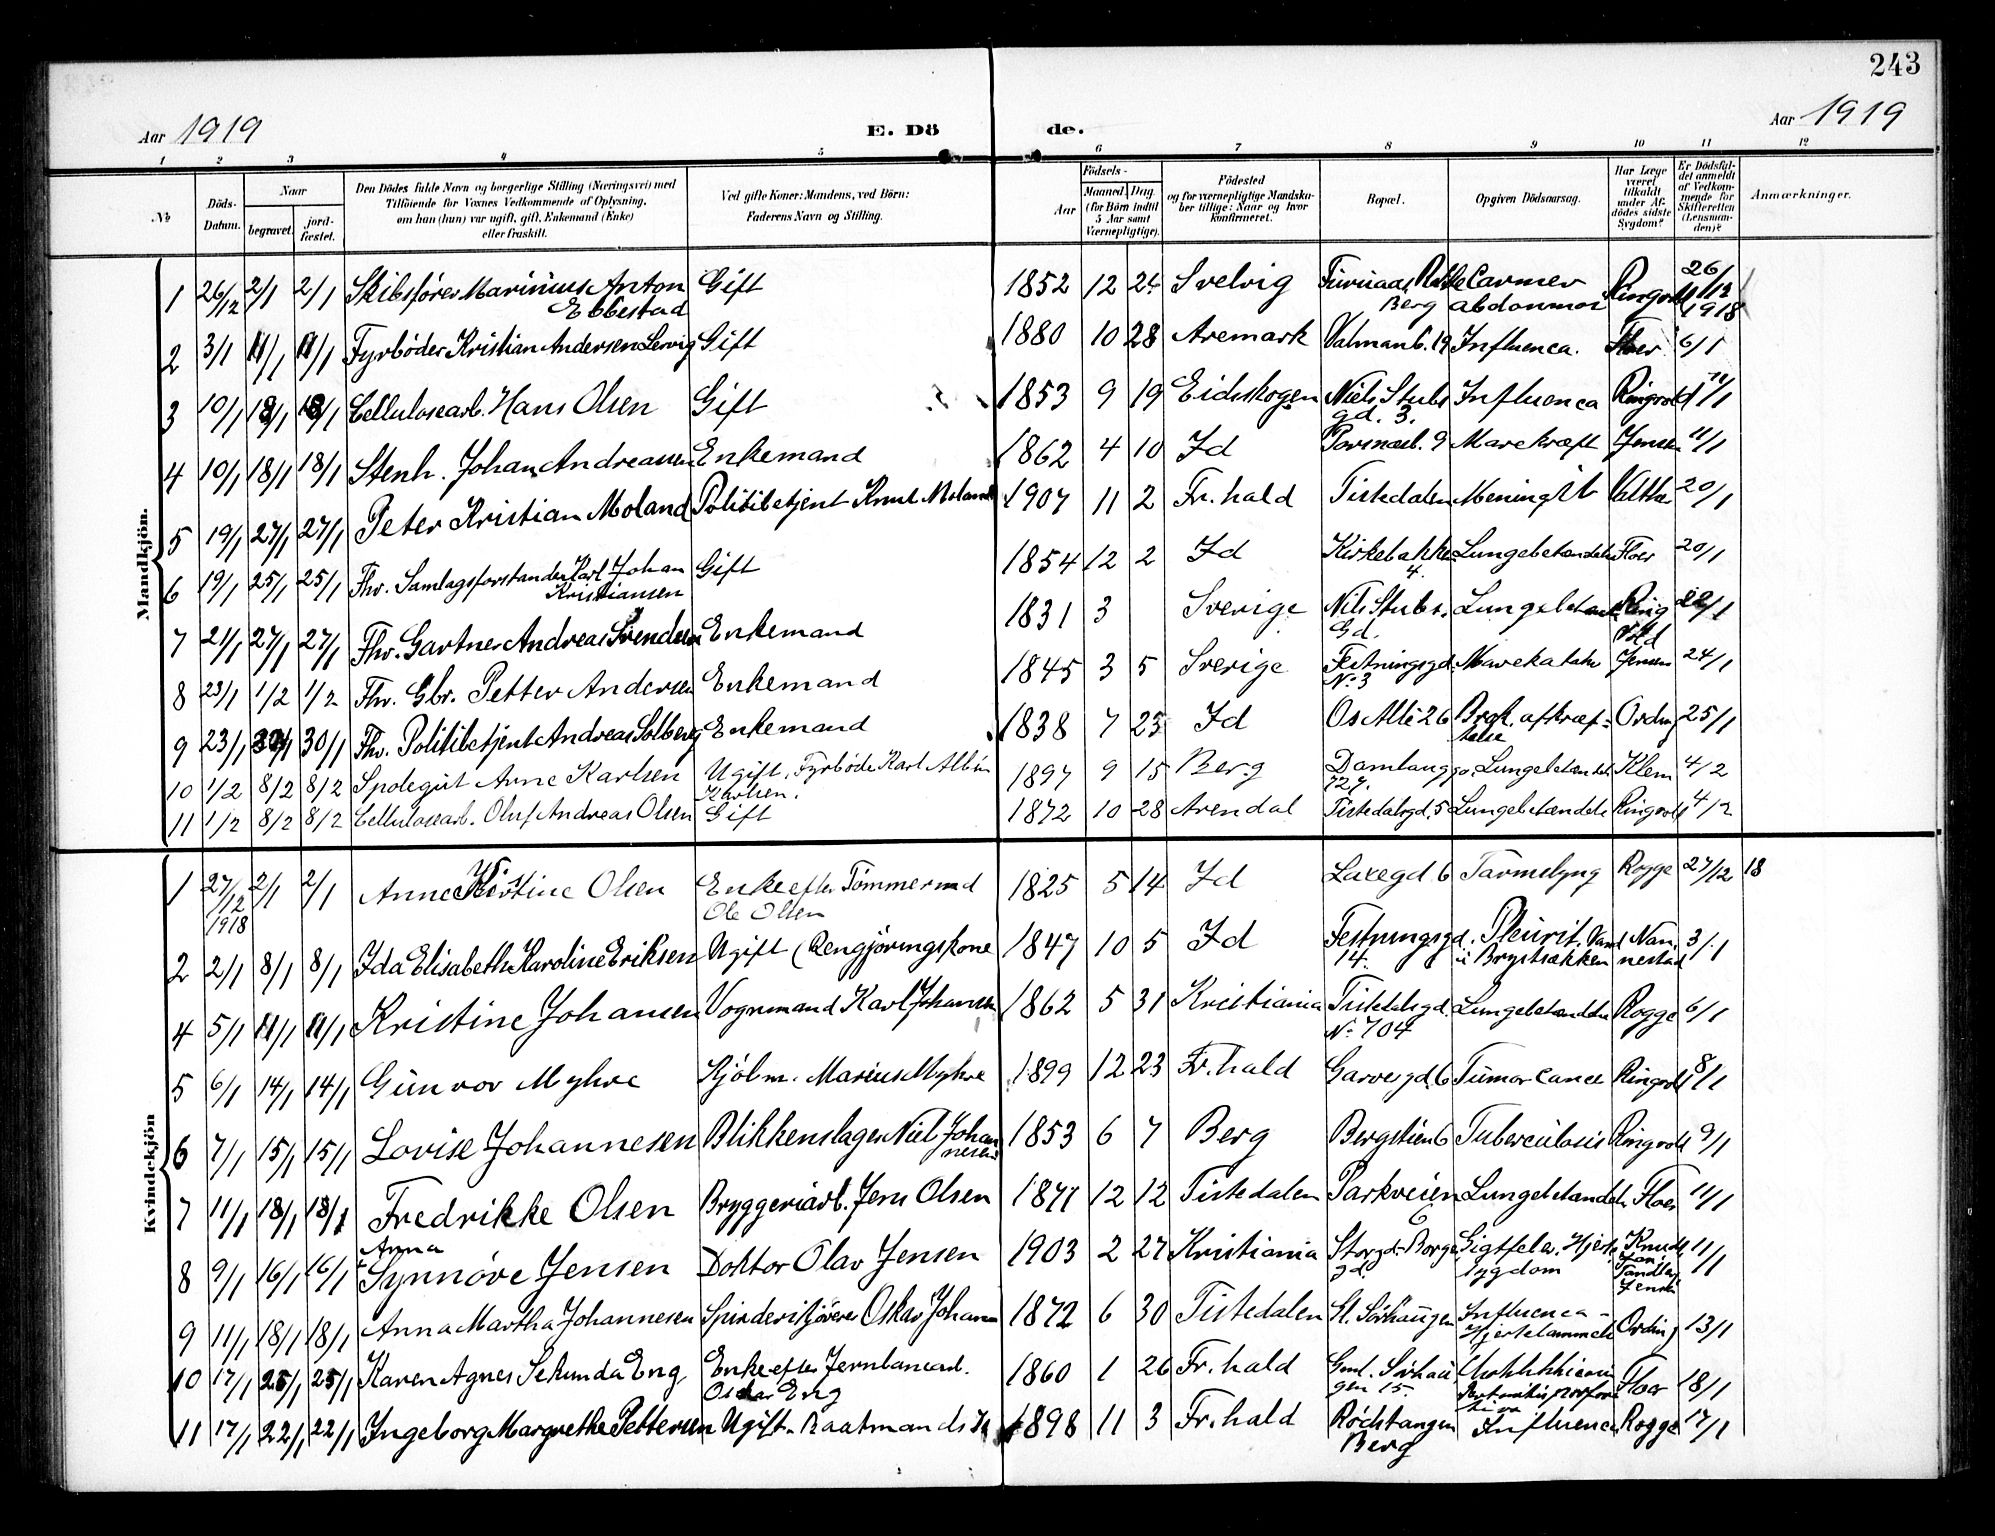 243
Aar 1919 E. Dö de. Aar 1919
1 2 3 4 5 6 7 8 9 10 11 12
№ Döds-Datum. Naar begravet. jord-fæstet. Den Dödes fulde Navn og borgerlige Stilling (Næringsvei) med Tilföiende for Voxnes Vedkommende af Oplysning, om han (hun) var ugift, gift, Enkemand (Enke) eller fraskilt. Ved gifte Koner: Mandens, ved Börn: Faderens Navn og Stilling. Födsels- Aar Maaned Dag (for Börn indtil 5 Aar samt Værnepligtige). Födested og for værnepligtige Mandskaber tillige: Naar og hvor konfirmeret. Bopæl. Opgiven Dödsaarsag. Har Læge været tilkaldt under Afdödes sidste Sygdom? Er Dödsfaldet anmeldt af Vedkommende for Skifteretten (Lensmanden)? Anmærkninger.
Mandkjön.
1 26/12 2/1 2/1 Skibsfører Marinius Anton Ebbestad Gift 1852 12 24 Svelvig Berg Ringvold 26/12 1918
2 3/1 11/1 11/1 Fyrbøder Kristian Andersen Lervig Gift 1880 10 28 Aremark Valmanb. 19 Influenca. Floer 6/1
3 10/1 18/1 18/1 Cellulosearb. Hans Olsen Gift 1853 9 19 Eidskogen Niels Stubs gd. 3. Influenca Ringvold 11/1
4 10/1 18/1 18/1 Stenh. Johan Andreassen Enkemand 1862 4 10 Id 9 Mavekræft Jensen 11/1
5 19/1 27/1 27/1 Peter Kristian Moland Politibetjent Knut Moland 1907 11 2 Fr. hald Tistedalen Meningit 20/1
6 19/1 25/1 25/1 Fhv. Samlagsforstander Karl Johan Kristiansen Gift 1854 12 2 Id Kirkebakken 4. Lungebetændelse Floer 20/1
7 21/1 27/1 27/1 Fhv. Gartner Andreas Svendsen Enkemand 1831 3 Sverige Nils Stubs. Gd. Ringvold 22/1
8 23/1 1/2 1/2 Fhv. Gbr. Petter Andersen Enkemand 1845 3 5 Sverige Festningsgd. No 3 Jensen 24/1
9 23/1 30/1 30/1 Fhv. Politibetjent Andreas Solberg Enkemand 1838 7 25 Id Os Allé 26 Ording 25/1
10 1/2 8/2 8/2 Spolegut Arne Karlsen Ugift. Fyrbøder Karl Albin Karlsen. 1897 9 15 Berg 727. Klem 4/2
11 1/2 8/2 8/2 Cellulosearb. Oluf Andreas Olsen Gift 1872 10 28 Arendal Tistedalsgd. 5 Lungebetændelse Ringvold 4/2
Kvindekjön
1 27/12 1918 2/1 2/1 Anne Kirstine Olsen Enke efter Tømmermd Ole Olsen 1825 5 14 Id Laxegd 6 Rogge 27/12 18
2 2/1 8/1 8/1 Ida Elisabeth Karoline Eriksen Ugift (Rengjøringskone 1847 10 5 Id Festningsgd. 14. Pleurit. Vand i Brystsækken Nannestad 3/1
4 5/1 11/1 11/1 Kristine Johansen Vognmand Karl Johansen 1862 5 31 Kristiania Tistedalsgd. No 704 Lungebetændelse Rogge 6/1
5 6/1 14/1 14/1 Gunvor Myhre Kjøbm. Marius Myhre 1899 12 23 Fr. hald Garvergd. 6 Tumor Ringvold 8/1
6 7/1 15/1 15/1 Lovise Johannesen Blikkenslager Niel Johannesen 1853 6 7 Berg Bergstien 6 Tuberculosis Ringvold 9/1
7 11/1 18/1 18/1 Fredrikke Olsen Bryggeriarb. Jens Olsen 1871 12 12 Tistedalen Parkveien 6 Lungebetændelse Floer 11/1
8 9/1 16/1 16/1 Anna Synnøve Jensen Doktor Olav Jensen 1903 2 27 Kristiania Storgd. Borgergd. Gigtfeber. Hjertesygdom Jensen 11/1
9 11/1 18/1 18/1 Anna Martha Johannesen Spinderikjører Oskar Johann 1872 6 30 Tistedalen Gl. Sörhaugen Influenca - Hjertelammelse Ording 13/1
10 17/1 25/1 25/1 Karen Agnes Sekunda Eng Enke efter Jernbanearb. Oskar Eng 1860 1 26 Fr. hald Gml. Sörhaugen 15. Floer 18/1
11 17/1 22/1 22/1 Ingeborg Margrethe Pettersen Ugift. Baatmands 1898 11 3 Fr. hald Rødstangen Berg Influenca Rogge 17/1